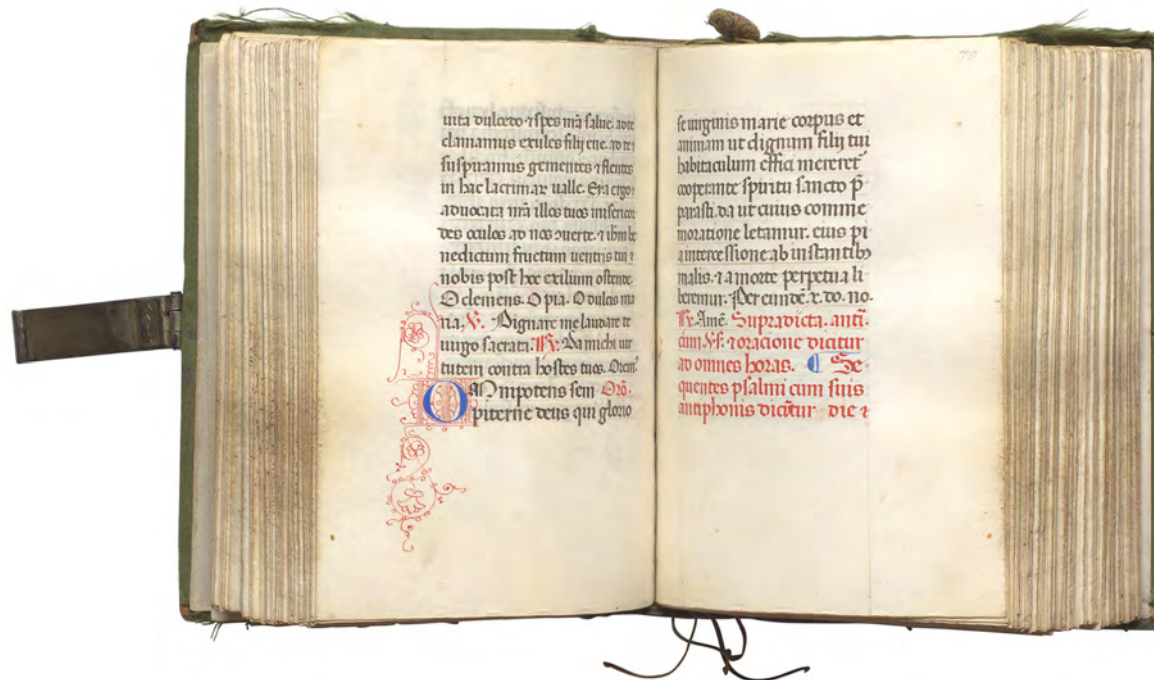 uita dulcedo ⁊ spes nr̄a salue. ad te
clamamus exules filij eue. ad te
suspiramus gementes ⁊ flentes
in hac lacrimarum ualle. Eya ergo
aduocata nr̄a illos tuos misericor
des oculos ad nos ɔuerte. ⁊ ih̄m be
nedictum fructum uentris tui
nobis post hoc exilium ostende.
O clemens. O pia. O dulcis ma
ria. ℣. Dignare me laudare te
uirgo sacrata. ℟. Da michi uir
tutem contra hostes tuos. Orem᷒
OMnipotens sem Orō.
piterne deus qui glorio
70
se uirginis marie corpus et
animam ut dignum filij tui
habitaculum effici mereret᷑
cooperante spiritu sancto p̄
parasti. da ut cuius comme
moratione letamur. eius pi
a intercessione ab instantibꝫ
malis. ⁊ a morte perpetua li
beremur. Per eundē. x̄. do. no.
℟. Amē. Supradicta. anti.
cum. ℣. ⁊ oracione dicitur
ad omnes horas. ¶ Se
quentes psalmi cum suis
antiphonis dicūtur die ⁊